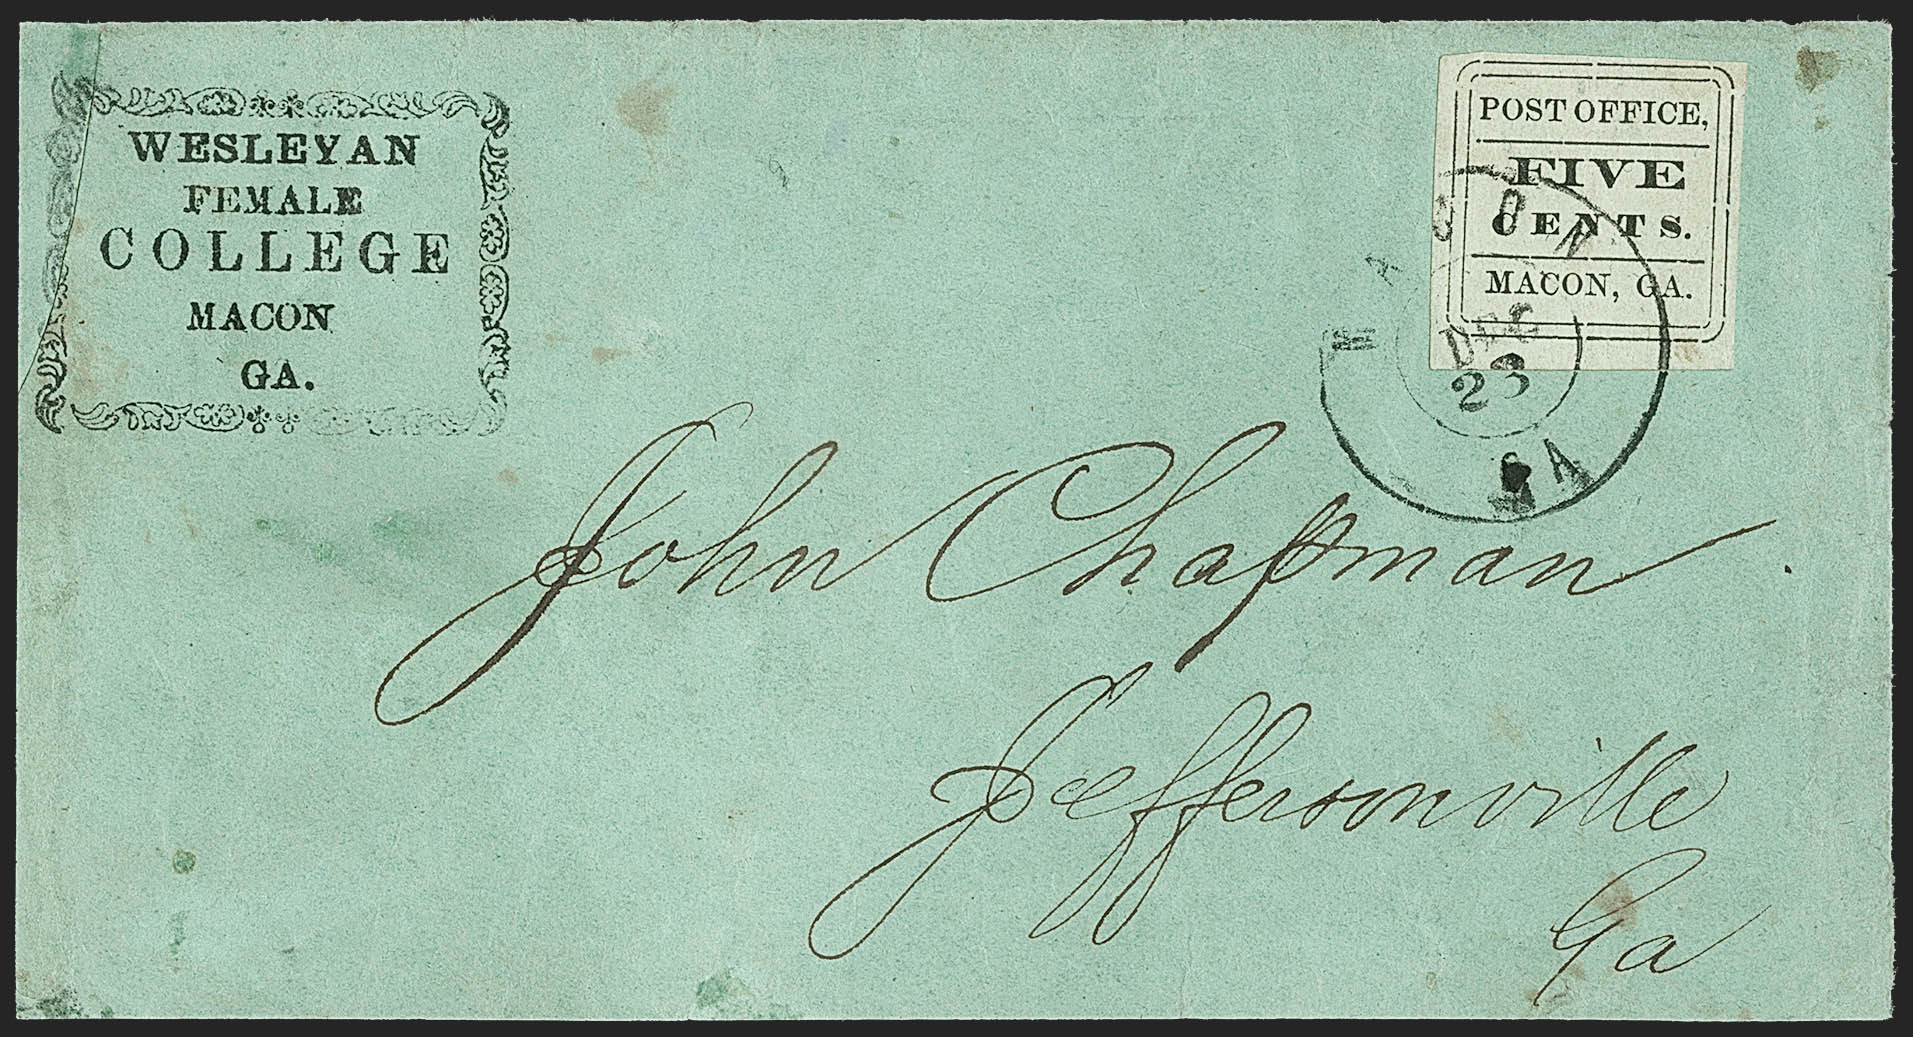 WESLEYAN
FEMALE
COLLEGE
MACON
GA.
POST OFFICE,
FIVE
CENTS.
MACON, GA.
MACON
DEC
23
GA
John Chapman
Jeffersonville
Ga